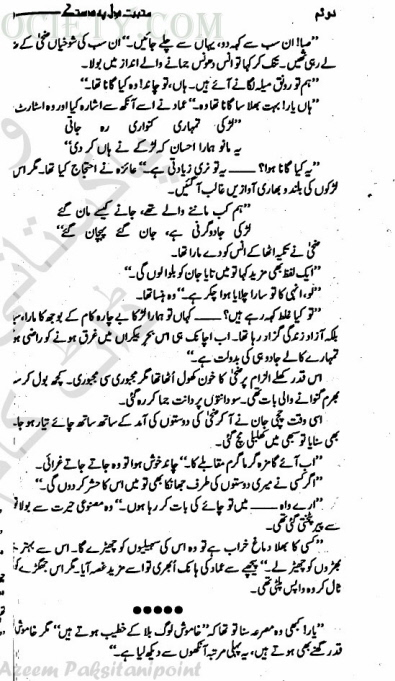 SOCIETY.COM
"صبا! ان سب سے کہہ دو، یہاں سے چلے جائیں۔" ان سب کی شوخیاں ضحیٰ کے
لے رہی تھیں۔ تنک کر کہا تو انس دھونس جمانے والے انداز میں بولا۔
"ہم تو رونق میلہ لگانے آئے ہیں۔ ہاں، تو چاند! وہ کیا گانا تھا۔"
"ہاں یار! بہت بھلا سا گانا تھا وہ۔" عماد نے اسے آنکھ سے اشارہ کیا اور وہ اسٹارٹ
"لڑکی تمہاری کنواری رہ جاتی
یہ مانو ہمارا احسان کہ لڑکے نے ہاں کر دی"
"یہ کیا گانا ہوا؟ ــــ یہ تو نری زیادتی ہے۔" عائزہ نے احتجاج کیا تھا۔ مگر اس
لڑکوں کی بلند و بھاری آوازیں غالب آ گئیں۔
"ہم کب ماننے والے تھے، جانے کیسے مان گئے
لڑکی جادوگرنی ہے، جان گئے پہچان گئے"
ضحیٰ نے تکیہ اٹھا کے انس کو دے مارا تھا۔
"ایک لفظ بھی مزید کہا تو میں تایا جان کو بلوا لوں گی۔"
"لو، انہی کا تو سارا چلایا ہوا چکر ہے۔" وہ ہنسا تھا۔
"تو کیا غلط کہہ رہے ہیں؟ ــــ کہاں تو ہمارا لڑکا بے چارہ کام کے بوجھ کا مارا،
بلکہ آزاد زندگی گزار رہا تھا۔ اب اچانک ہی اس بحرِ بیکراں میں غرق ہونے کو راضی
تمہارے کالے جادو ہی کی بدولت ہے۔"
اس قدر کھلے الزام پر ضحیٰ کا خون کھول اُٹھا تھا مگر مجبوری سی مجبوری۔ کچھ بول کر
بھرم گنوانے والی بات تھی۔ سو دانتوں پر دانت جما کر رہ گئی۔
اسی وقت چچی جان نے آ کر ضحیٰ کی دوستوں کی آمد کے ساتھ ساتھ چائے تیار ہو
بھی سنایا تو سبھی میں کھلبلی مچ گئی۔
"اب آئے گا مزہ گرما گرم مقابلے کا۔" چاند خوش ہوا تو وہ جاتے جاتے غرائی۔
"اگر کسی نے میری دوستوں کی طرف جھانکا بھی تو میں اس کا حشر کر دوں گی۔"
"ارے واہ ــــ میں تو چائے کی بات کر رہا ہوں۔" وہ مصنوعی حیرت سے بولا تو
سے پیر پٹختی گئی تھی۔
"کسی کا بھلا دماغ خراب ہے تو وہ اس کی سہیلیوں کو چھیڑے گا۔ اس سے بہتر
بھڑوں کو چھیڑ لے۔" پیچھے سے عماد کی ہانک اُبھری تو اسے مزید غصہ آیا۔ مگر اس جھگڑے کو
ٹال کر وہ واپس پلٹی تھی۔
●●●●●
"یار! کبھی وہ مصرعہ سنا تو تھا کہ "خاموش لوگ بلا کے خطیب ہوتے ہیں" مگر خاموش
قدر گھنے بھی ہوتے ہیں، یہ پہلی مرتبہ آنکھوں سے دیکھ لیا ہے۔"
Azeem Paksitanipoint